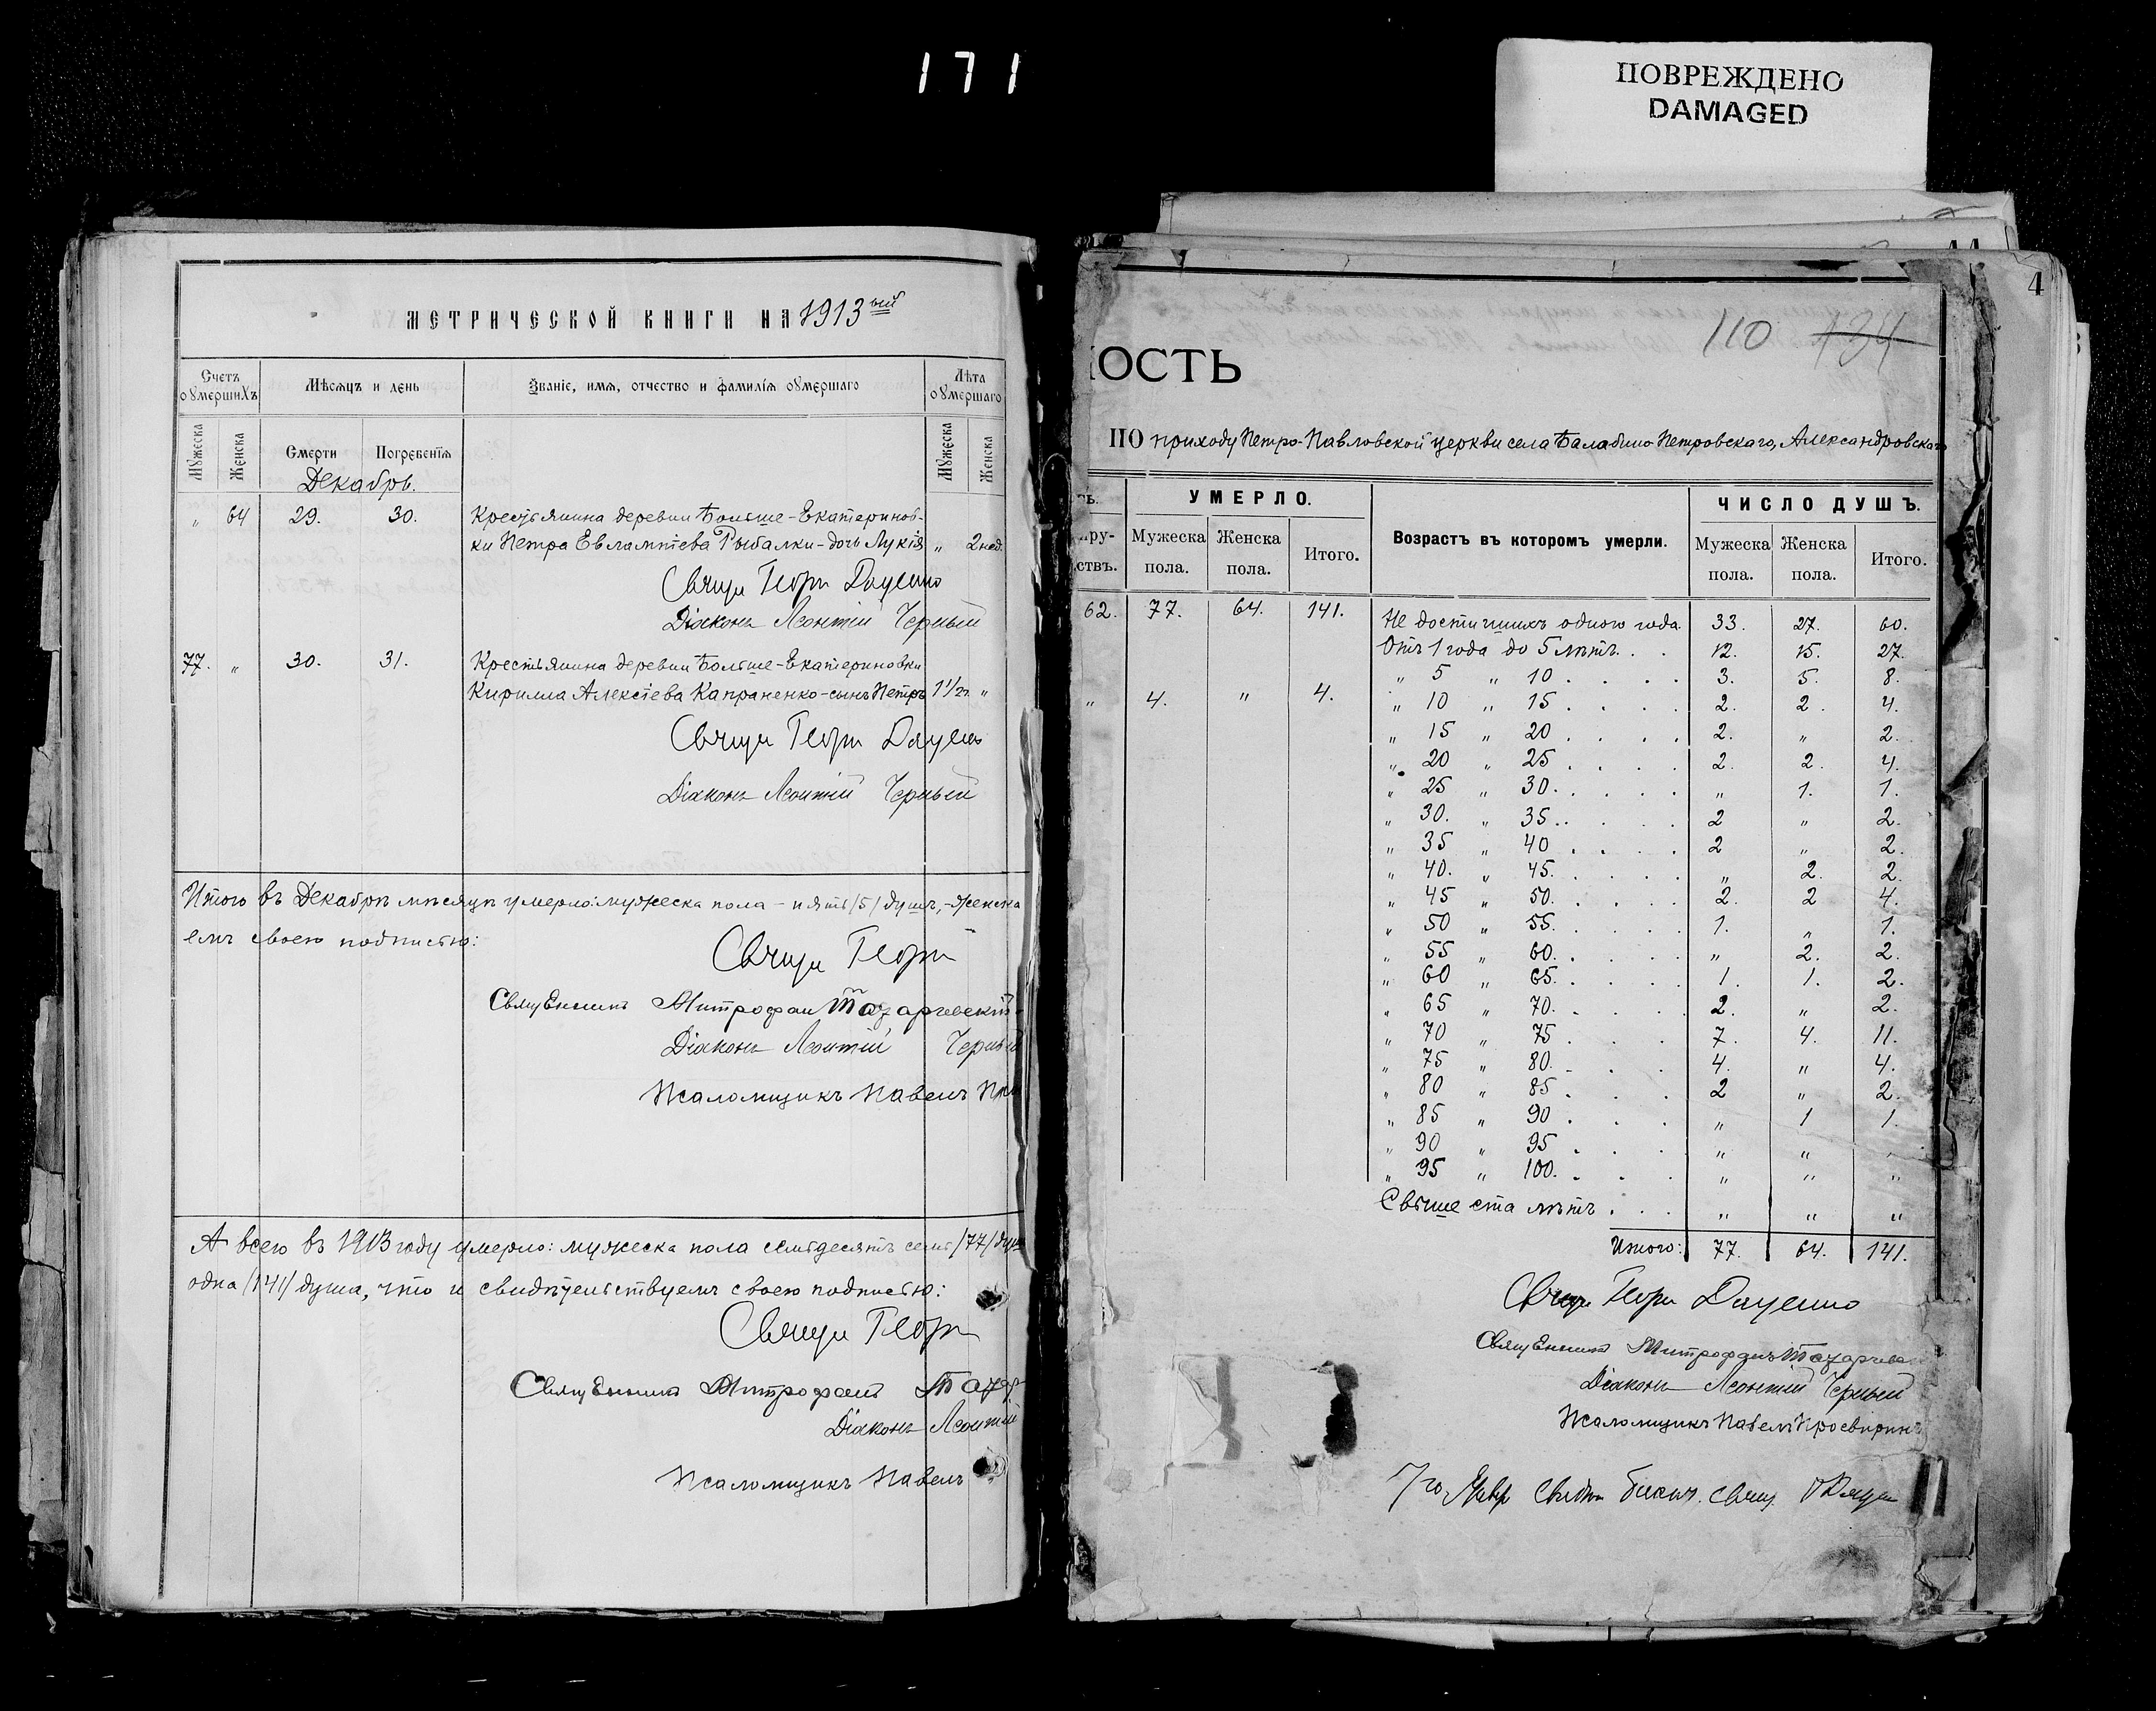 171
ПОВРЕЖДЕНО
DAMAGED
МЕТРИЧЕСКОЙ КНИГИ НА 1913ый
Счетъ оумершихъ
Мѣсяцъ и день
Званіе, имя, отчество и фамилія оумершаго
Лѣта оумершаго
Мужеска Женска Смерти Погребенія Мужеска Женска
Декабрь.
„ 64 29. 30. Крестьянина деревни Больше-Екатеринов-
ки Петра Евлампіева Рыбалки-дочь Лукія „ 2 нед.
Свящ Георг Даценко
Діаконъ Леонтій Черный
77. „ 30. 31. Крестьянина деревни Больше-Екатериновки
Кирилла Алексіева Капраненко-сынъ Петръ 1 1/2 г. „
Свящ Георг Даценко
Діаконъ Леонтій Черный
Итого въ Декабрѣ мѣсяцѣ умерло: мужеска пола - пять /5/ душъ, -женска
емъ своею подписью:
Свящ Георг
Священникъ Митрофан
Діаконъ Леонтій Черный
Псаломщикъ Павелъ
А всего въ 1913 году умерло: мужеска пола семьдесятъ семь /77/ душ
одна /141/ душа, что и свидѣтельствуемъ своею подписью:
Свящ Георг
Священникъ Митрофанъ
Діаконъ Леонтій
Псаломщикъ Павелъ
4
110 134
ОСТЬ
ПО приходу Петро-Павловской церкви села Балабино-Петровскаго, Александровскаго
УМЕРЛО. Возрастъ въ которомъ умерли. ЧИСЛО ДУШЪ.
Мужеска пола. Женска пола. Итого. Мужеска пола. Женска пола. Итого.
62. 77. 64. 141. Не достигшихъ одного года. 33. 27. 60.
Отъ 1 года до 5 лѣтъ. . . 12. 15. 27.
„ 5 „ 10 . . . . 3. 5. 8.
„ 4. „ 4. „ 10 „ 15 . . . . 2. 2. 4.
„ 15 „ 20 . . . . 2. „ 2.
„ 20 „ 25 . . . . 2. 2. 4.
„ 25 „ 30. . . . . „ 1. 1.
„ 30. „ 35. . . . . 2 „ 2.
„ 35 „ 40 . . . . 2 „ 2.
„ 40. „ 45. . . . . „ 2. 2.
„ 45 „ 50. . . . . 2. 2 4.
„ 50 „ 55. . . . . 1. „ 1.
„ 55 „ 60. . . . . „ 2. 2.
„ 60 „ 65. . . . . 1. 1. 2.
„ 65 „ 70. . . . 2. „ 2.
„ 70 „ 75 . . . 7. 4. 11.
„ 75 „ 80. . . . 4. „ 4.
„ 80 „ 85 . . . 2 „ 2.
„ 85 „ 90 . . . „ 1 1.
„ 90 „ 95 . . . „ „ „
„ 95 „ 100. . . . „ „ „
Свыше ста лѣтъ . . . „ „ „
Итого: 77. 64. 141.
Свящ Георг Даценко
Священникъ Митрофанъ
Діаконъ Леонтій Черный
Псаломщикъ Павелъ Просвиринъ